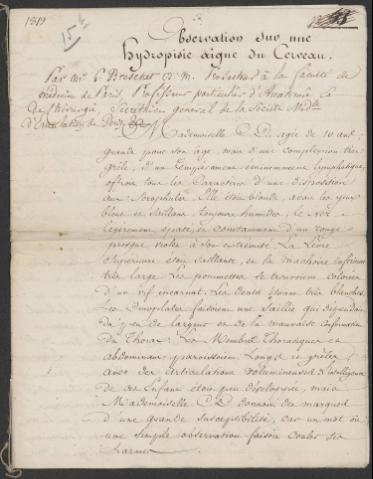 1819
15
Observation sur une
hydropisie aigue du Cerveau.
Par mr. G Breschet D. M. Prosecteur à la faculté de
médecine de Paris Professeur particulier d'Anatomie &
de Chirurgie, Secrétaire général de la Société Médle
d'Emulation de Paris &c
Mademoiselle C. D. agée de 10 ans,
grande pour son age, mais d'une complexion très
grêle, d'un tempérament éminemment lymphatique,
offroit tous les caractères d'une disposition
aux Scrophules. Elle étoit blonde, avoit les yeux
bleus et saillans, toujours humides, le nez
légèrement épaté, et constamment d'un rouge
presque violet à son extrémité. La Lèvre
Supérieure étoit saillante, et la machoire inférieure
très large. Les pommettes se trouvoient colorées
d'un vif incarnat. Les dents étoient très blanches.
Les Omoplates faisoient une Saillie qui dépendoit
du peu de largeur et de la mauvaise Conformation
du Thorax. Les Membres Thorachiques et
abdominaux paroissoient Longs et grêles,
avec des articulations volumineuses. L'intelligence
de cet Enfant étoit peu développée, mais
Mademoiselle C. D. donnoit des marques
d'une grande susceptibilité, car un mot ou
une simple observation faisoit couler ses
Larmes